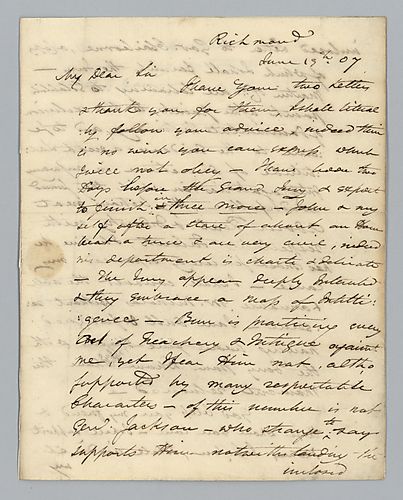 Richmond
June 19th 07
My Dear Sir I have your two letters
& thank you for them, I shall literal
ly follow your advice, indeed there
is no wish you can express which
I will not obey — I have been two
Days before the Grand Jury & expect
to finish in three more — John & my
self after a stare of about an Hour
are very civil, indeed
his department is chaste & delicate
— The Jury appear deeply
& they embrace a mass of Intelli-
gence — Burr is practising every
art of Treachery & Intrigue against
me, yet I fear Him not altho
supported by many respectable
Characters — of this number is not
Genl. Jackson — who strange to say
supports Him notwithstanding the
inclosed